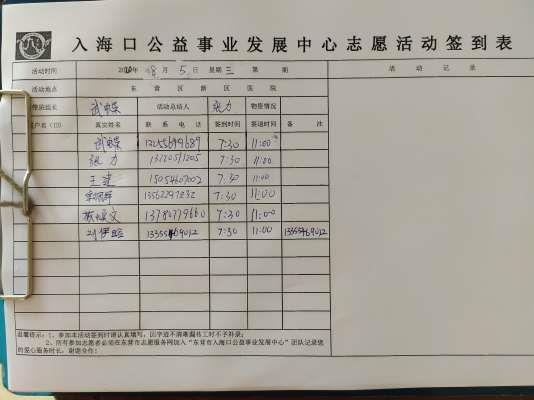 入海口公益事业发展中心志愿活动签到表
活动时间 2020年 8月 5日 星期三 第 期 活动记录
活动地点 东营区新区医院
带班班长 武蝶 活动总结人 张力 物资情况
客户名（ID） 真实姓名 联系电话 签到时间 签退时间 备注
武蝶 7:30 11:00
张力 7:30 11:00
王建 15054607002 7:30 11:00
7:30 11:00
7:30 11:00
刘伊暄 13355469012 7:30 11:00 13355469012
温馨提示：1、参加本活动签到时请认真填写，因字迹不清断漏按工时不予补录；
2、所有参加志愿者必须在东营市志愿服务网加入“东营市入海口公益事业发展中心”团队记录您
的爱心服务时长，谢谢合作！